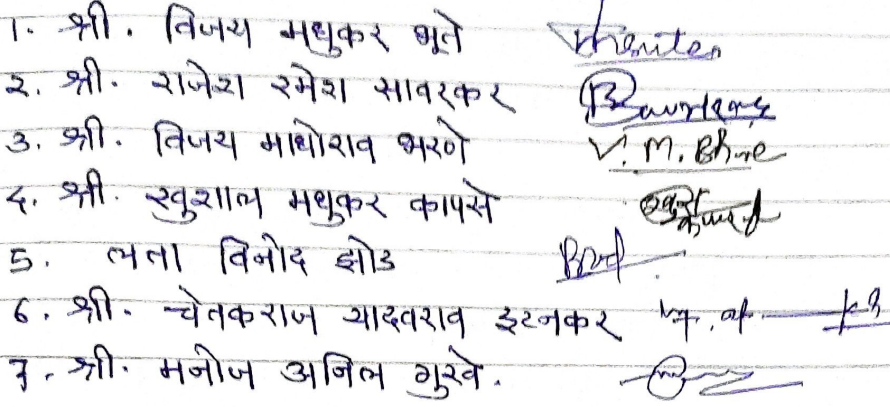 1. श्री. विजय मधुकर भूते
२. श्री. राजेश रमेश सावरकर
३. श्री. विजय माधोराव भरणे V. M. Bhre
४. श्री. खुशाल मधुकर कापसे
5. लता विनोद झोड
6. श्री. चेतकराज यादवराव इटनकर
७. श्री. मनोज अनिल गुरवे.